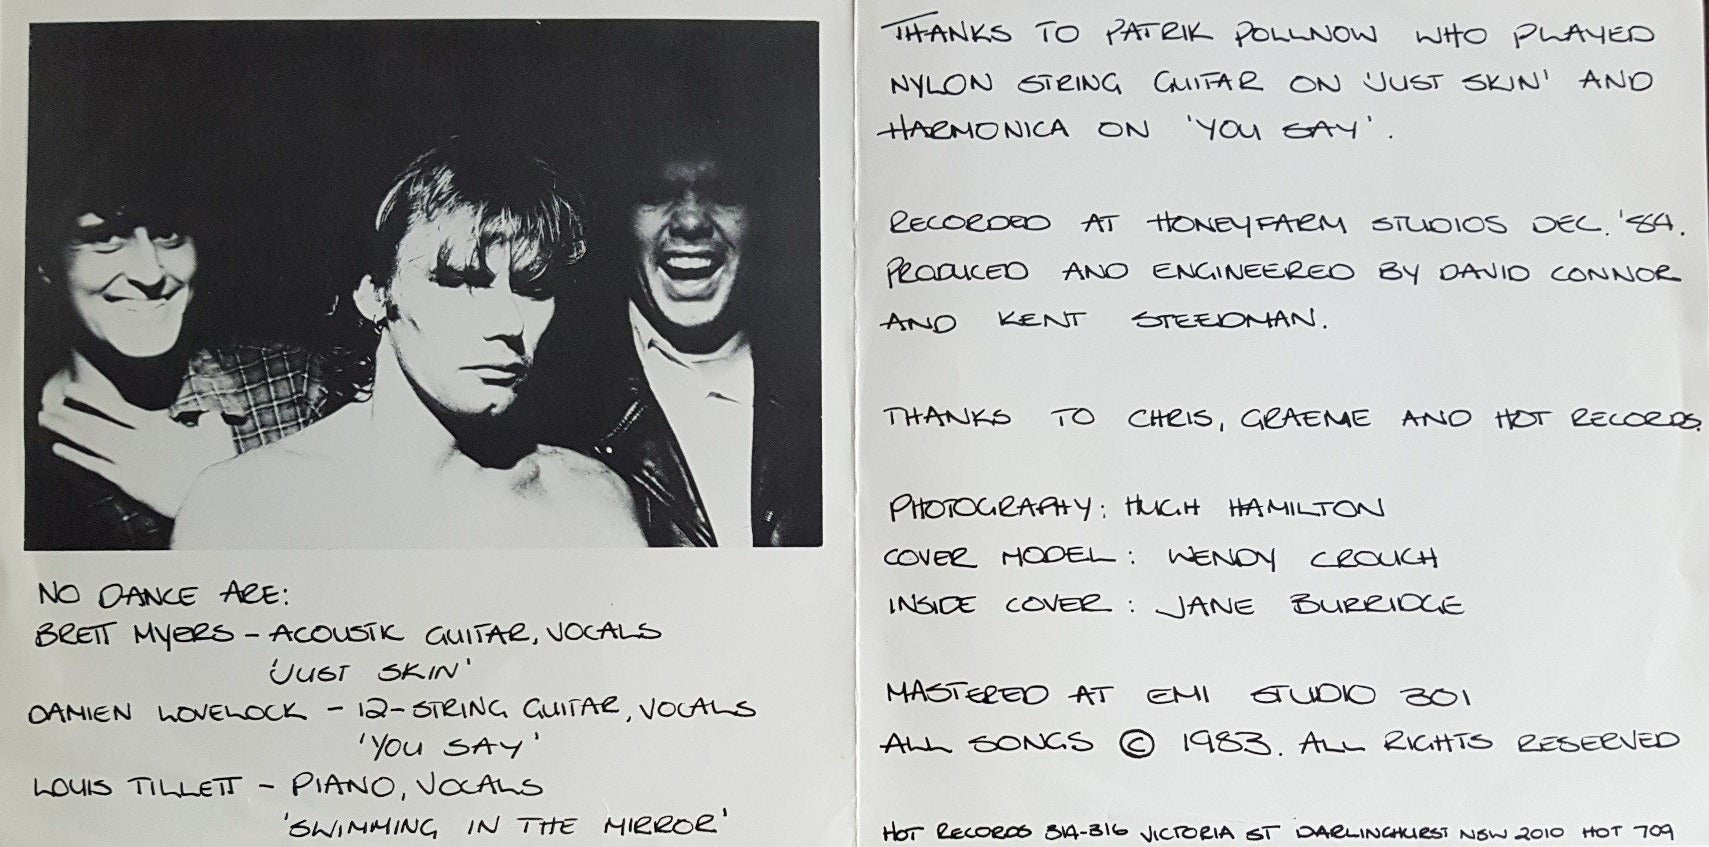 NO DANCE ARE:
BRETT MYERS - ACOUSTIC GUITAR, VOCALS
'JUST SKIN'
DAMIEN LOVELOCK - 12-STRING GUITAR, VOCALS
'YOU SAY'
LOUIS TILLETT - PIANO, VOCALS
'SWIMMING IN THE MIRROR'
THANKS TO PATRIK POLLNOW WHO PLAYED
NYLON STRING GUITAR ON 'JUST SKIN' AND
HARMONICA ON 'YOU SAY'.
RECORDED AT HONEYFARM STUDIOS DEC. '84.
PRODUCED AND ENGINEERED BY DAVID CONNOR
AND KENT STEEDMAN.
THANKS TO CHRIS, GRAEME AND HOT RECORDS.
PHOTOGRAPHY: HUGH HAMILTON
COVER MODEL: WENDY CROUCH
INSIDE COVER: JANE BURRIDGE
MASTERED AT EMI STUDIO 301
ALL SONGS © 1983. ALL RIGHTS RESERVED
HOT RECORDS 314-316 VICTORIA ST DARLINGHURST NSW 2010 HOT 709